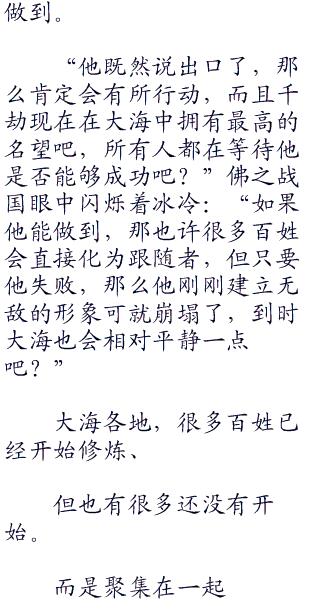 做到。
“他既然说出口了，那
么肯定会有所行动，而且千
劫现在在大海中拥有最高的
名望吧，所有人都在等待他
是否能够成功吧？”佛之战
国眼中闪烁着冰冷：“如果
他能做到，那也许很多百姓
会直接化为跟随者，但只要
他失败，那么他刚刚建立无
敌的形象可就崩塌了，到时
大海也会相对平静一点
吧？”
大海各地，很多百姓已
经开始修炼、
但也有很多还没有开
始。
而是聚集在一起